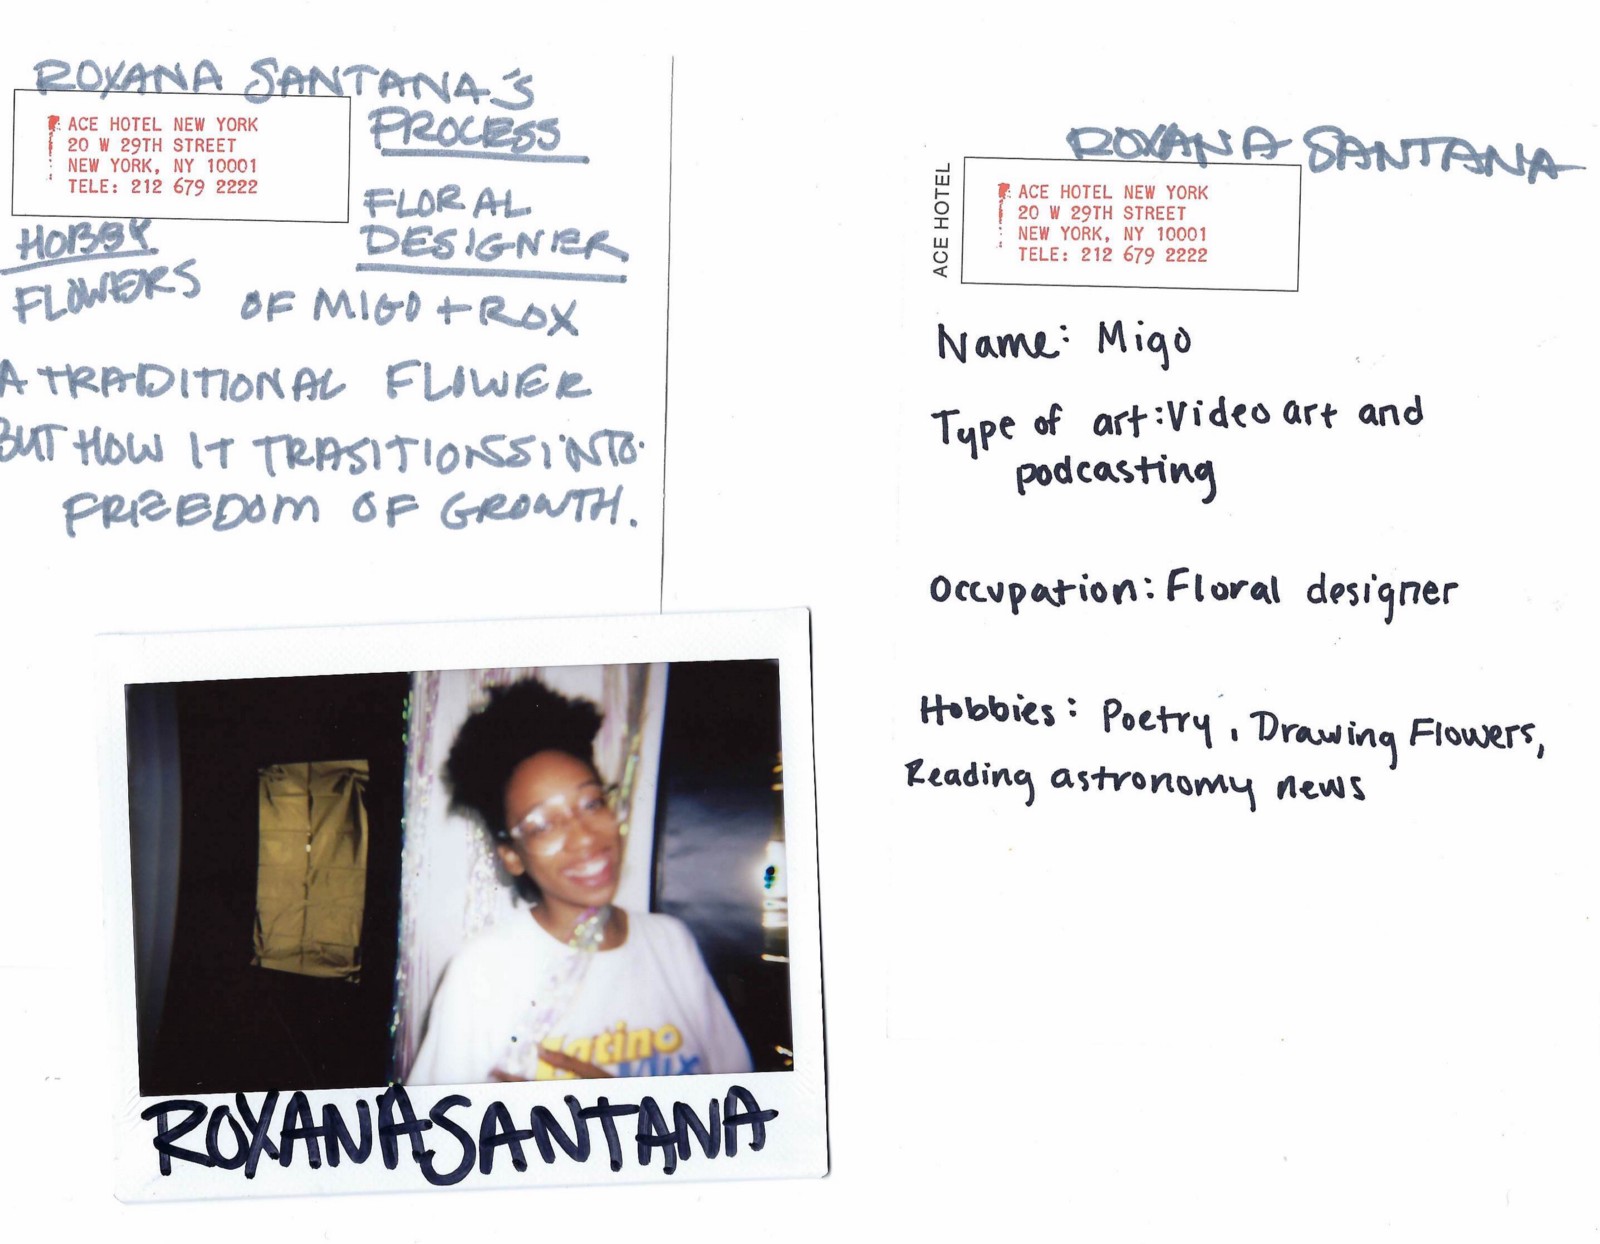 ROXANA SANTANA'S
PROCESS
ACE HOTEL NEW YORK
20 W 29TH STREET
NEW YORK, NY 10001
TELE: 212 679 2222
FLORAL
DESIGNER
HOBBY
FLOWERS
OF MIGO + ROX
A TRADITIONAL FLOWER
BUT HOW IT TRASITIONSS INTO
FREEDOM OF GROWTH.
Latino
MIX
ROXANA SANTANA
ROXANA SANTANA
ACE HOTEL
ACE HOTEL NEW YORK
20 W 29TH STREET
NEW YORK, NY 10001
TELE: 212 679 2222
Name: Migo
Type of art: Video art and
podcasting
Occupation: Floral designer
Hobbies: Poetry, Drawing Flowers,
Reading astronomy news